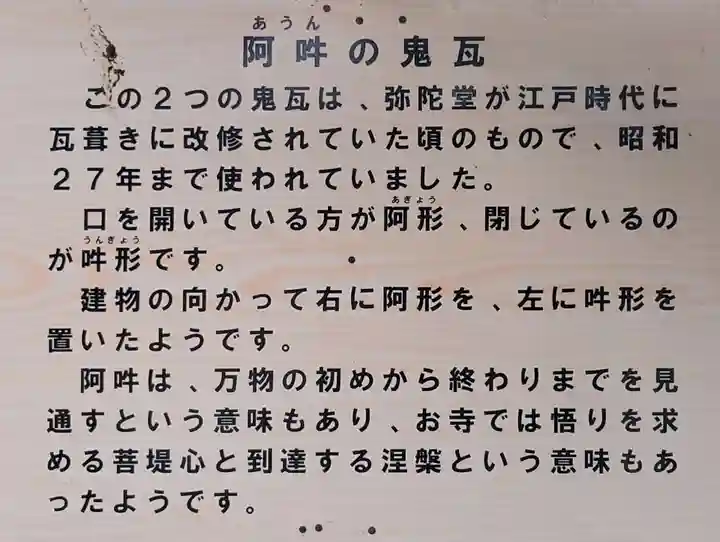 あうん
阿吽の鬼瓦
この２つの鬼瓦は、弥陀堂が江戸時代に
瓦葺きに改修されていた頃のもので、昭和
２７年まで使われていました。
あぎょう
口を開いている方が阿形、閉じているの
うんぎょう
が吽形です。
建物の向かって右に阿形を、左に吽形を
置いたようです。
阿吽は、万物の初めから終わりまでを見
通すという意味もあり、お寺では悟りを求
める菩堤心と到達する涅槃という意味もあ
ったようです。